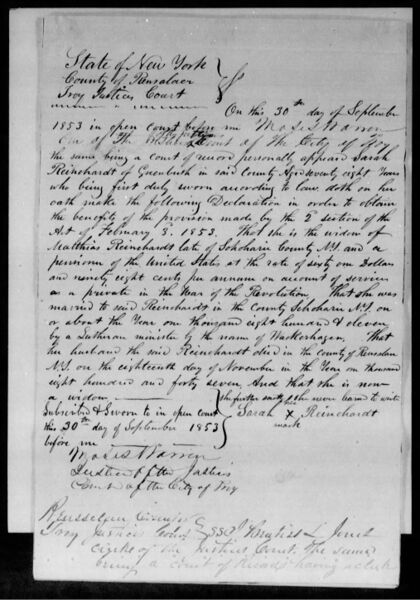 State of New York
County of Rensalaer } ss
Troy Justices Court
On this 30th day of September
1853 in open court before me Moses Warren
One of The Justices Court of The City of Troy
the same being a Court of record personally appeared Sarah
Reinehardt of Greenbush in said County Aged seventy eight Years
who being first duly sworn according to law, doth on her
oath make the following Declaration in order to obtain
the benefits of the provision made by the 2d section of the
Act of February 3. 1853. That she is the widow of
Matthias Reinehardt late of Schoharie County N.Y. and a
pensioner of the United States at the rate of sixty one Dollars
and ninety eight cents per annum on account of service
as a private in the War of the Revolution That she was
married to said Reinehardt in the County Schoharie N.Y. on
or about the Year one thousand eight hundred & eleven,
by a Lutheran minister by the name of Wackerhagen. That
her husband the said Reinehardt died in the County of
N.Y. on the eighteenth day of November in the Year one thousand
eight hundred and forty seven, And that she is now
a widow she further saith she never learned to write
Subscribed & Sworn to in open court
this 30th day of September 1853
before me
Sarah X Reinehardt
her mark
Moses Warren
Justice of the Justices
Court of the City of Troy
Rensselaer County
Troy Justices Court } SS I L Jones
Clerk of the Justices Court, The same
being a Court of Records having a clerk